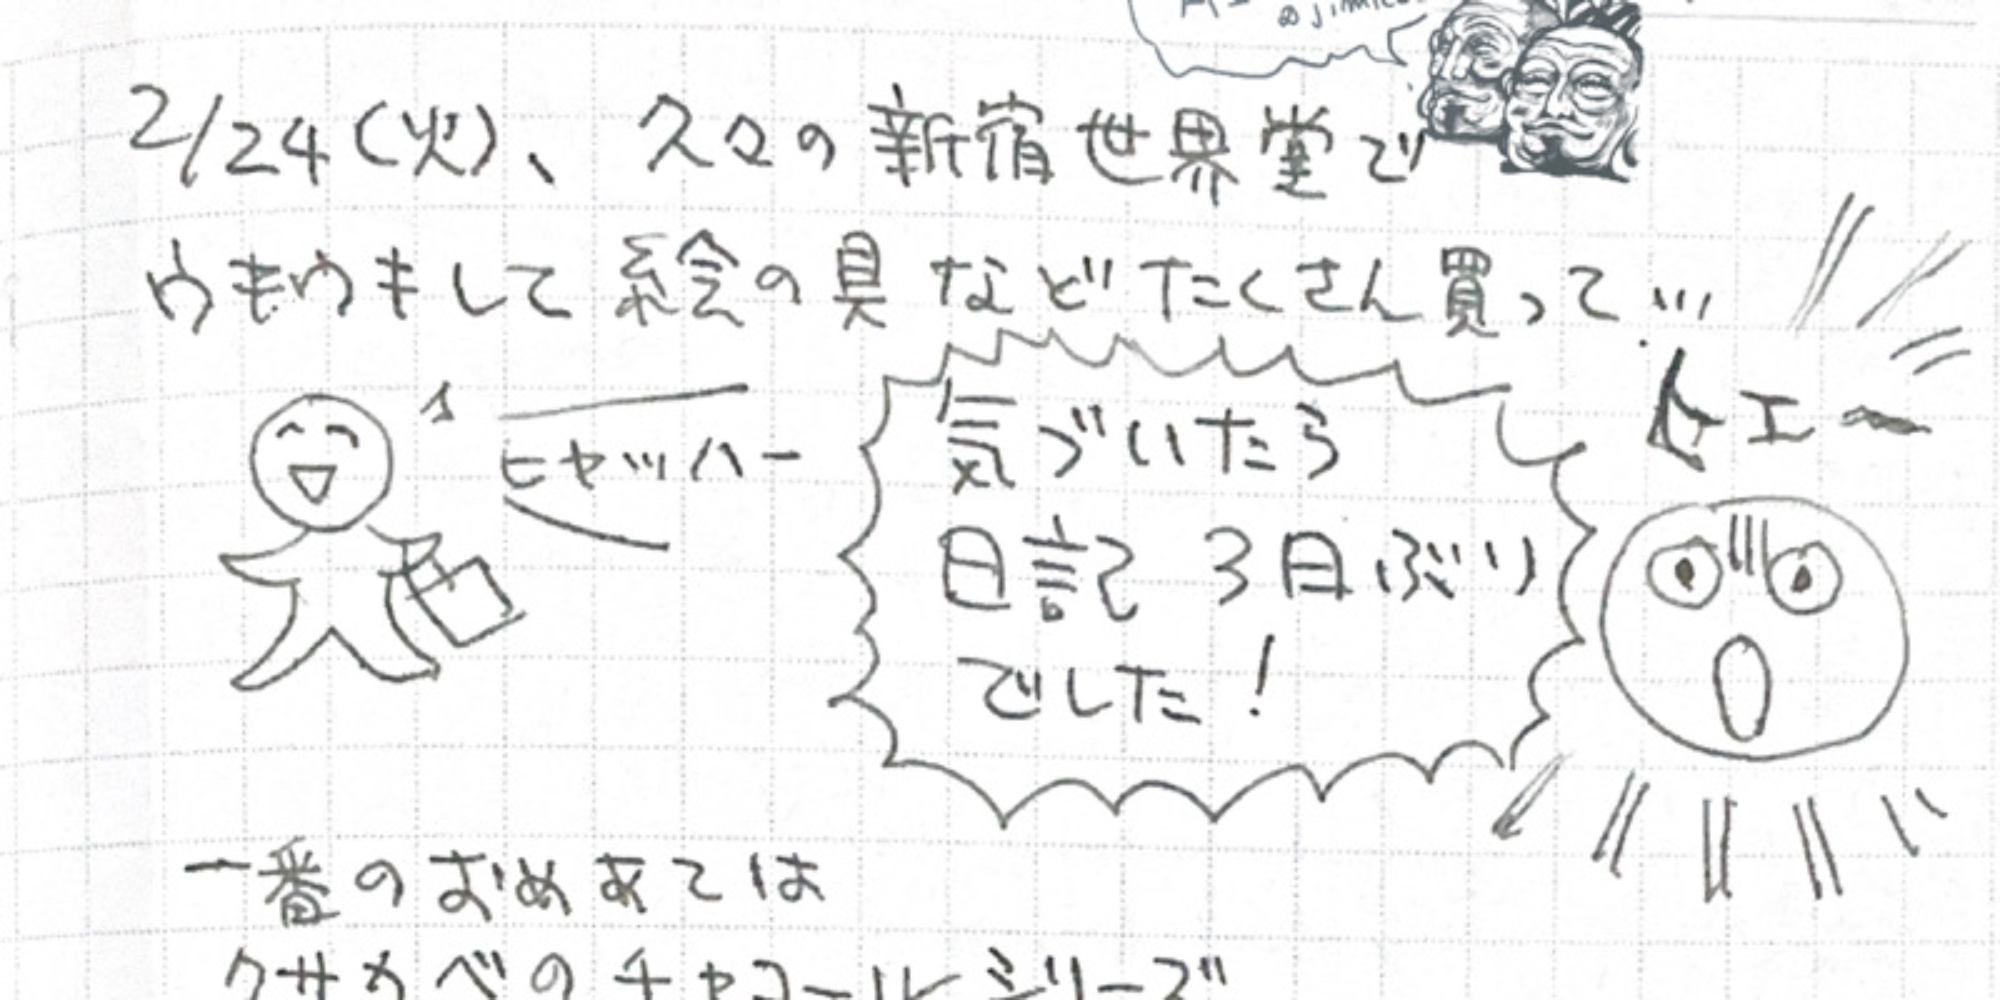 2/24(火)、久々の新宿世界堂で
ウキウキして絵の具などたくさん買って…
ヒャッハー
気づいたら
日記 3日ぶり
でした!
エー
一番のおめあては
クサカベのチャコールシリーズ